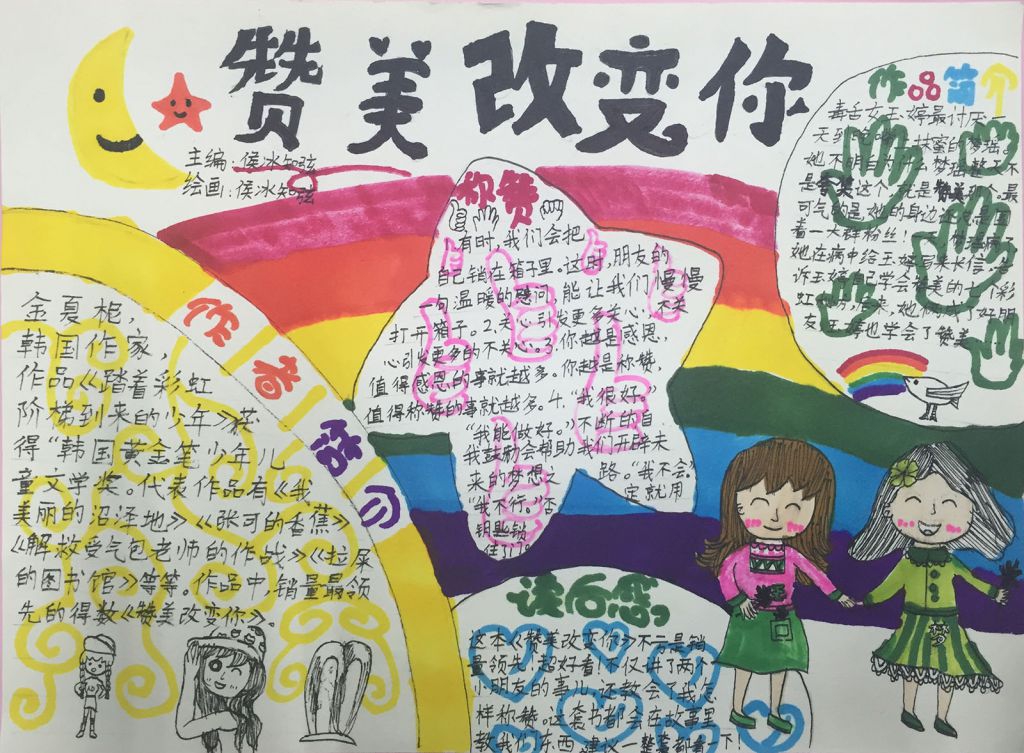 赞美改变你
主编：侯冰知弦
绘画：侯冰知弦
作品简介
毒舌女王婷最讨厌一
她不明白为什么梦瑶整天不
是
这个，就是赞美那个，最
可气的是，她的身边还总是围
着一大群粉丝！
她在病中给王婷写来长信，告
诉王婷自己学会赞美的七个彩
她们成了好朋
友，王婷也学会了赞美
称赞
有时，我们会把
自己锁在箱子里。这时，朋友的
一句温暖的慰问，能让我们慢慢
打开箱子。2.关心引发更多关心，不关
心引发更多的不关心。3.你越是感恩，
值得感恩的事就越多。你越是称赞，
值得称赞的事就越多。4.“我很好。”
“我能做好。”不断的自
我鼓励会帮助我们开辟未
来的梦想之路。“我不会”
“我不行。”它就用
钥匙锁
住了门。
作者简介
金夏柜，
韩国作家，
作品《踏着彩虹
阶梯到来的少年》获
得“韩国黄金笔少年儿
童文学奖。代表作品有《我
美丽的沼泽地》《张可的香蕉》
《解救受气包老师的作战》《拉屎
的图书馆》等等。作品中，销量最领
先的得数《赞美改变你》。
读后感
这本《赞美改变你》不亏是销
量领先，超好看！不仅讲了两个
小朋友的事儿，还教会了我怎
样称赞。这套书都会在故事里
教我们东西，建议一整套都看一下！